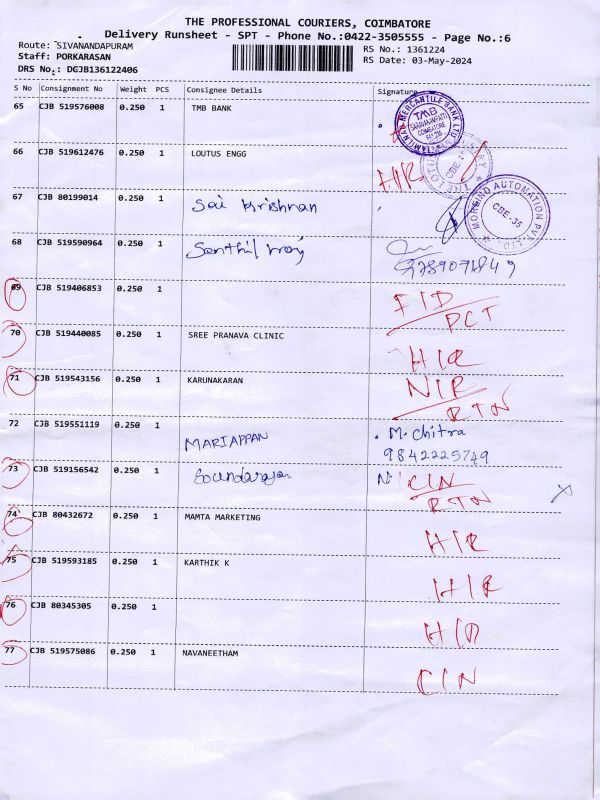 THE PROFESSIONAL COURIERS, COIMBATORE
Delivery Runsheet - SPT - Phone No.:0422-3505555 - Page No.:6
Route: SIVANANDAPURAM
RS No.: 1361224
Staff: PORKARASAN
RS Date: 03-May-2024
DRS No.: DGJB136122406
S No Consignment No Weight PCS Consignee Details Signature
65 CJB 519576008 0.250 1 TMB BANK
TAMILNAD MERCANTILE BANK LTD
TMB
COIMBATORE
66 CJB 519612476 0.250 1 LOUTUS ENGG
67 CJB 80199014 0.250 1 Sai Krishnan
MORFINO AUTOMATION PVT. LTD.
CBE-35
68 CJB 519590964 0.250 1
69 CJB 519406853 0.250 1 FID
PCT
70 CJB 519440085 0.250 1 SREE PRANAVA CLINIC HIR
71 CJB 519543156 0.250 1 KARUNAKARAN NIR
RTN
72 CJB 519551119 0.250 1 MARIAPPAN M. Chitra
9842225749
73 CJB 519156542 0.250 1 Soundarajan CIN
RTN
74 CJB 80432672 0.250 1 MAMTA MARKETING HIR
75 CJB 519593185 0.250 1 KARTHIK K HIR
76 CJB 80345305 0.250 1 HIR
77 CJB 519575086 0.250 1 NAVANEETHAM CIN